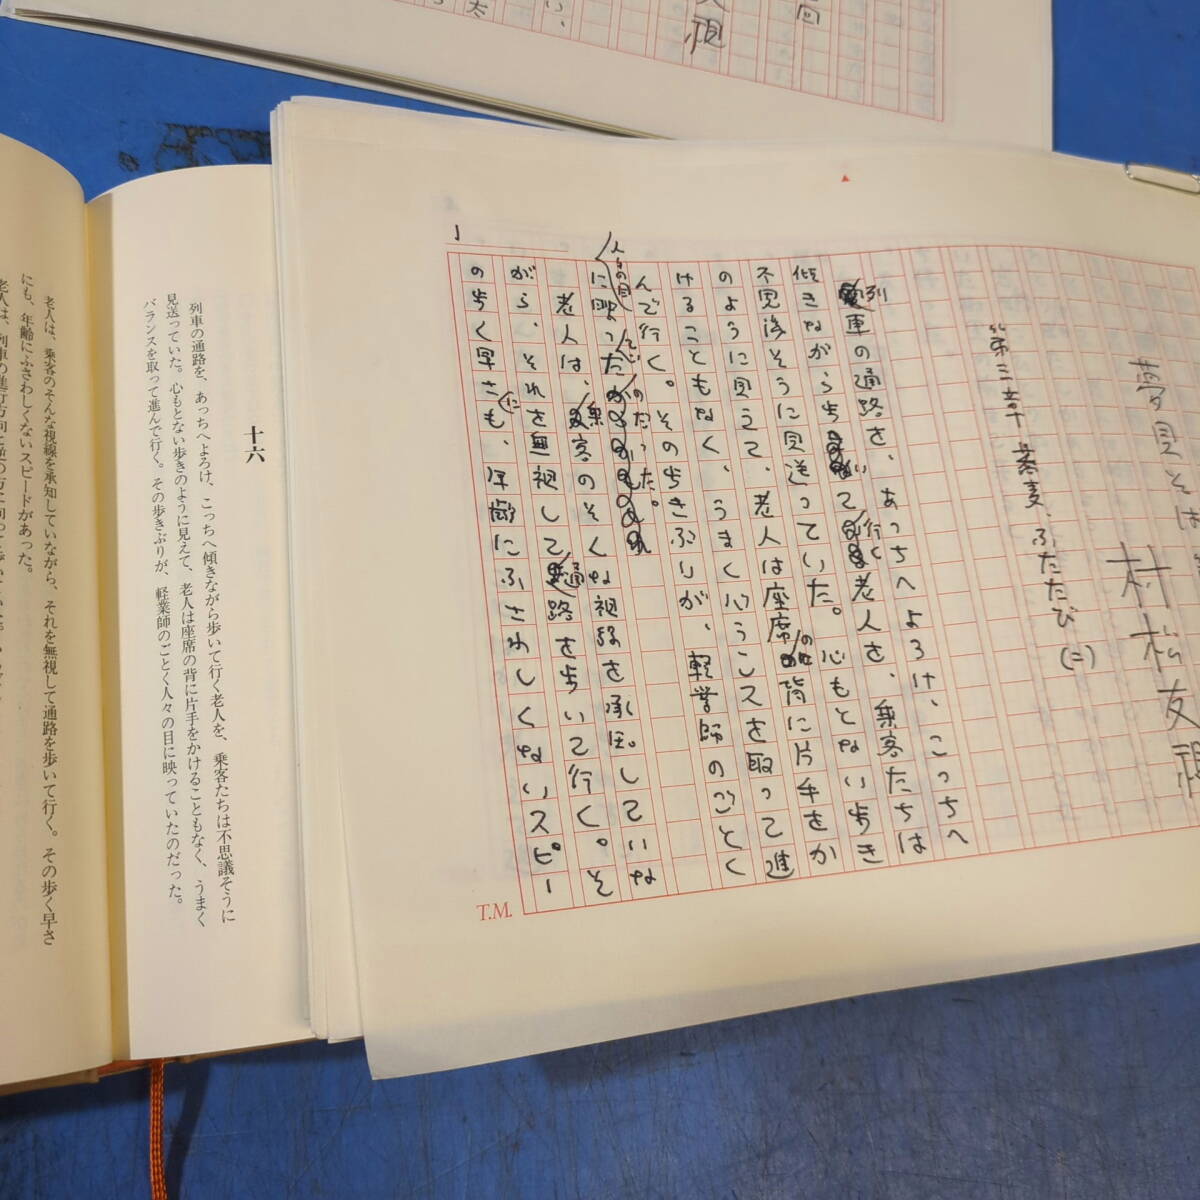 夢見そば
村松友視
第三章 蕎麦、ふたたび (二)
列車の通路を、あっちへよろけ、こっちへ
傾きながら歩いて行く老人を、乗客たちは
不思議そうに見送っていた。心もとない歩き
のように見えて、老人は座席の背に片手をか
けることもなく、うまくバランスを取って進
んで行く。その歩きぶりが、軽業師のごとく
人々の目に映っていたのだった。
老人は、乗客のそんな視線を承知していな
がら、それを無視して通路を歩いて行く。そ
の歩く早さにも、年齢にふさわしくないスピー
1
T.M.
十六
列車の通路を、あっちへよろけ、こっちへ傾きながら歩いて行く老人を、乗客たちは不思議そうに
見送っていた。心もとない歩きのように見えて、老人は座席の背に片手をかけることもなく、うまく
バランスを取って進んで行く。その歩きぶりが、軽業師のごとく人々の目に映っていたのだった。
老人は、乗客のそんな視線を承知していながら、それを無視して通路を歩いて行く。その歩く早さ
にも、年齢にふさわしくないスピードがあった。
老人は、列車の進行方向と